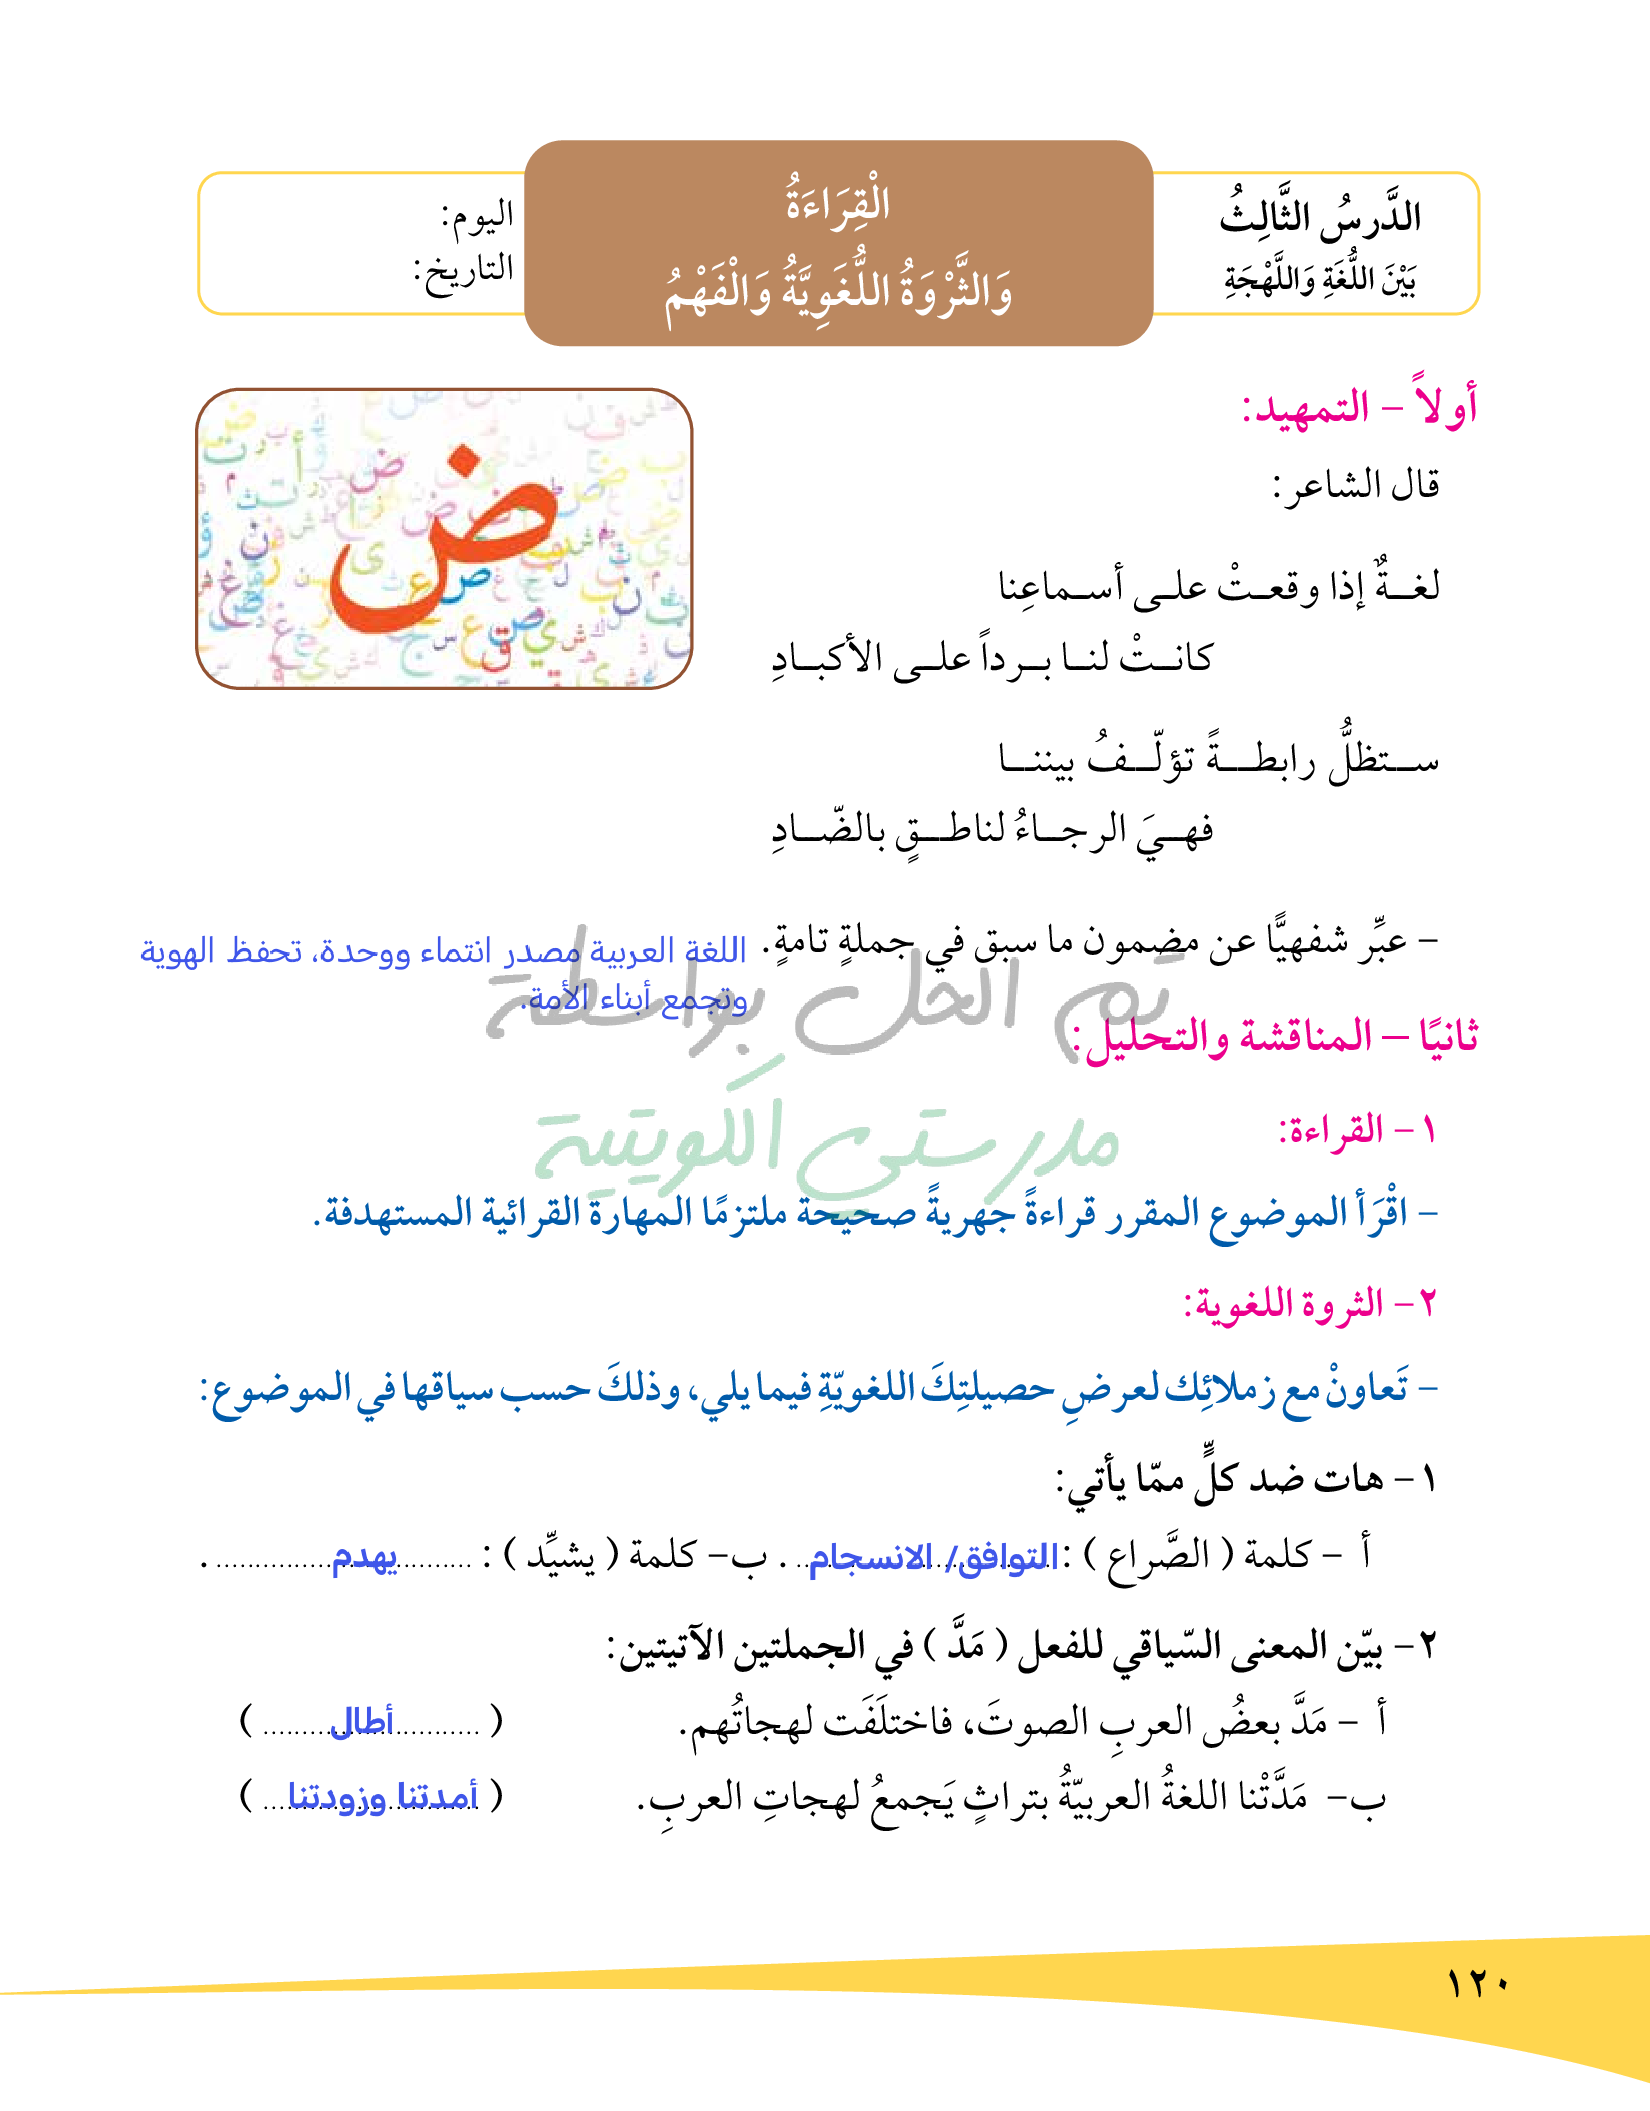 الدَّرسُ الثَّالِثُ
بَيْنَ اللُّغَةِ وَاللَّهْجَةِ
الْقِرَاءَةُ
وَالثَّرْوَةُ اللُّغَوِيَّةُ وَالْفَهْمُ
اليوم:
التاريخ:
أولاً – التمهيد:
قال الشاعر:
ض
لغةٌ إذا وقعتْ على أسماعِنا
كانتْ لنا برداً على الأكبادِ
ستظلُّ رابطةً تؤلّفُ بيننا
فهيَ الرجاءُ لناطقٍ بالضّادِ
– عبِّر شفهيًّا عن مضمون ما سبق في جملةٍ تامةٍ. اللغة العربية مصدر انتماء ووحدة، تحفظ الهوية
وتجمع أبناء الأمة.
تم الحل بواسطة
ثانيًا – المناقشة والتحليل:
مدرستي الكويتية
١– القراءة:
– اقْرَأ الموضوع المقرر قراءةً جهريةً صحيحة ملتزمًا المهارة القرائية المستهدفة.
٢– الثروة اللغوية:
– تَعاونْ مع زملائِك لعرضِ حصيلتِكَ اللغويّةِ فيما يلي، وذلكَ حسب سياقها في الموضوع:
١– هات ضد كلٍّ ممّا يأتي:
أ – كلمة ( الصَّراع ) : التوافق/ الانسجام . ب– كلمة ( يشيِّد ) : يهدم .
٢– بيّن المعنى السّياقي للفعل ( مَدَّ ) في الجملتين الآتيتين:
أ – مَدَّ بعضُ العربِ الصوتَ، فاختلَفَت لهجاتُهم. ( أطال )
ب– مَدَّتْنا اللغةُ العربيّةُ بتراثٍ يَجمعُ لهجاتِ العربِ. ( أمدتنا وزودتنا )
١٢٠